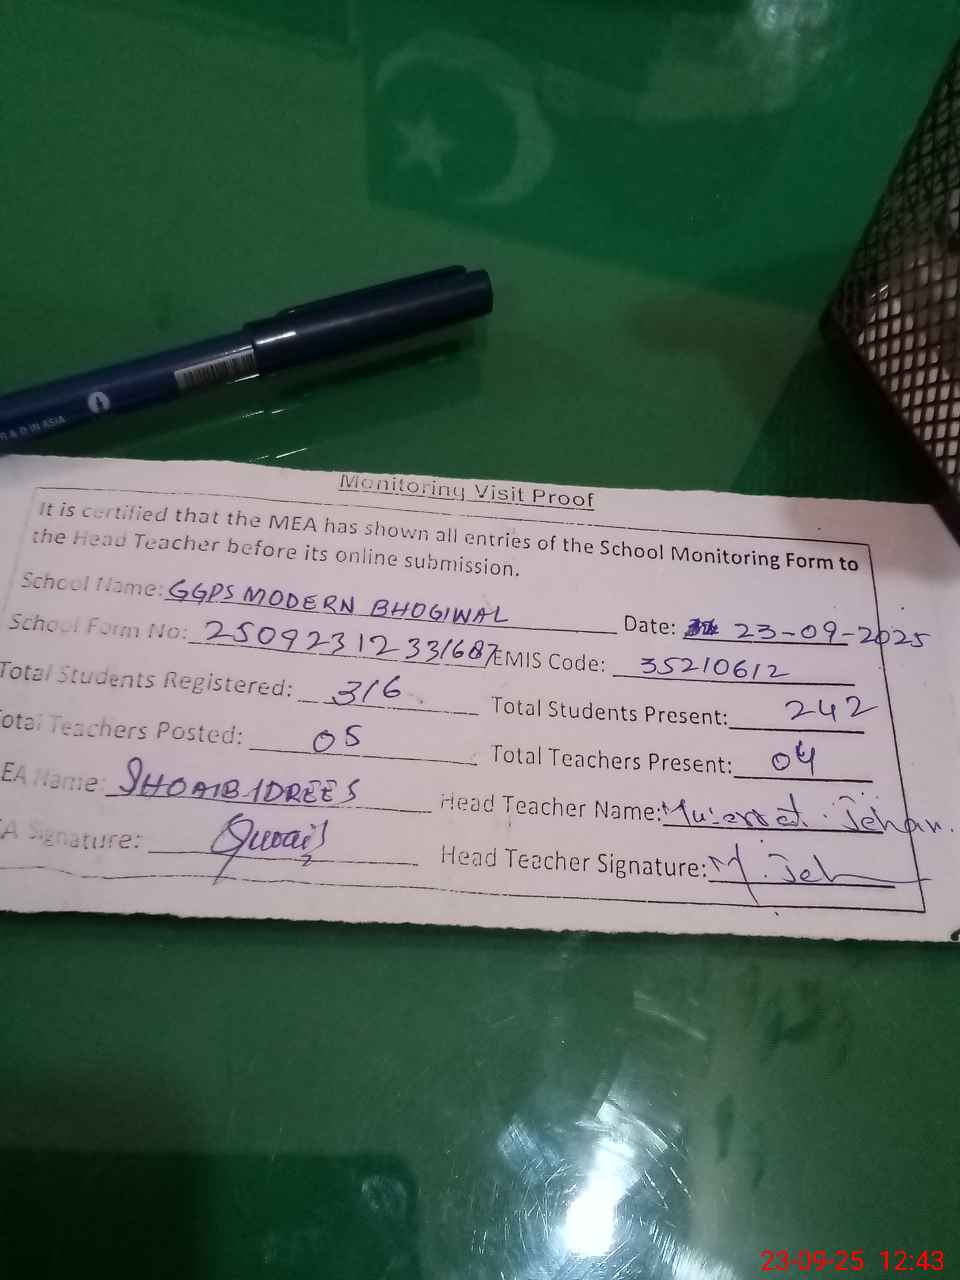 R & D IN ASIA
Monitoring Visit Proof
It is certified that the MEA has shown all entries of the School Monitoring Form to
the Head Teacher before its online submission.
School Name: GGPS MODERN BHOGIWAL
Date: 23-09-2025
School Form No: 25092312331687 EMIS Code: 35210612
Total Students Registered: 316 Total Students Present: 242
Total Teachers Posted: 05 Total Teachers Present: 04
EA Name: SHOAIB IDREES Head Teacher Name: Jehan.
A Signature: Head Teacher Signature: M. Jeh
23-09-25 12:43